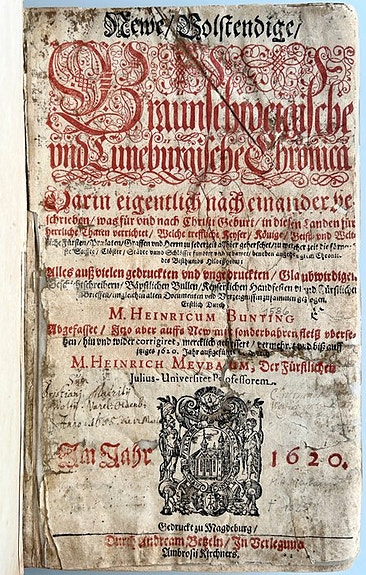 Newe/Volstendige/
Braunschweigische
vnd Lüneburgische Chronica
Darin eigentlich nach einander be-
schrieben/was für vnd nach Christi Geburt/in diesen Landen für
herrliche Thaten verrichtet/Welche treffliche Keyser/Könige/Geist- vnd
liche Fürsten/Praelaten/Graffen vnd Herrn zu jederzeit alhier geherschet/in welcher zeit die
Städte vnd Schlösser fundirt vnd erbawet/beneben
Alles auß vielen gedruckten vnd vngedruckten/Glaubwirdigen
Geschichtschreibern/Bäpstlichen Bullen/Keyserlichen Handfesten vnd Fürstlichen
Brieffen/imgleichen alten Documenten vnd Verzeugnissen zusammen gezogen.
Erstlich Durch
M. HEINRICUM BUNTING
Abgefasset/Itzo aber auffs New mit sonderbahren fleiß vberse-
hen/hin vnd wider corrigiret, mercklich gebessert/vermehrt vnd biß auff
jetziges 1620. Jahr außgeführet/durch
M. HEINRICH MEYBAUM, Der Fürstlichen
Julius-Universitet Professorem.
Im Jahr 1620.
Gedruckt zu Magdeburg/
Durch Andream Betzeln/In Verlegung
Ambrosij Kirchners.